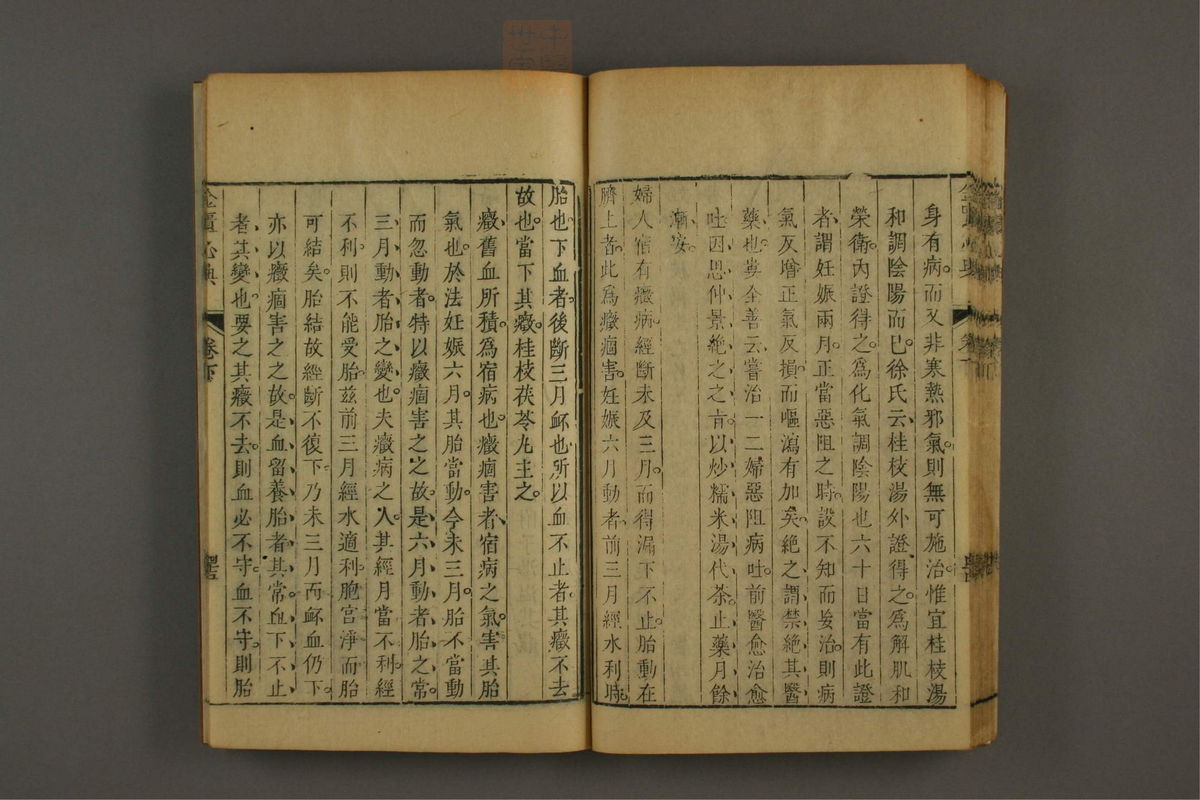 身有病而又非寒熱邪氣則無可施治惟宜桂枝湯
和調陰陽而已徐氏云桂枝湯外證得之爲解肌和
榮衛內證得之爲化氣調陰陽也六十日當有此證
者謂妊娠兩月正當惡阻之時設不知而妄治則病
氣反增正氣反損而嘔瀉有加矣絶之謂禁絶其醫
藥也婁全善云嘗治一二婦惡阻病吐前醫愈治愈
吐因思仲景絶之之旨以炒糯米湯代茶止藥月餘
漸安
婦人宿有癥病經斷未及三月而得漏下不止胎動在
臍上者此爲癥痼害妊娠六月動者前三月經水利時
胎也下血者後斷三月衃也所以血不止者其癥不去
故也當下其癥桂枝茯苓丸主之
癥舊血所積爲宿病也癥痼害者宿病之氣害其胎
氣也於法妊娠六月其胎當動今未三月胎不當動
而忽動者特以癥痼害之之故是六月動者胎之常
三月動者胎之變也夫癥病之人其經月當不利經
不利則不能受胎兹前三月經水適利胞宮淨而胎
可結矣胎結故經斷不復下乃未三月而衃血仍下
亦以癥痼害之之故是血留養胎者其常血下不止
者其變也要之其癥不去則血必不守血不守則胎
金匱心典
卷下